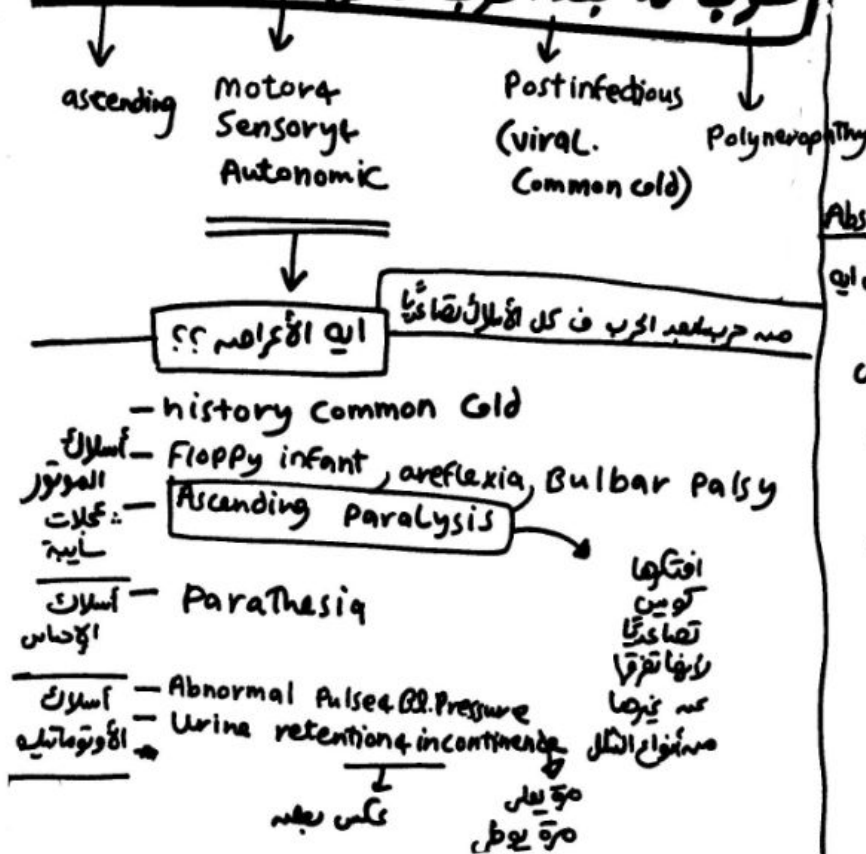 ascending
motor&
Sensory&
Autonomic
Postinfectious
(viral.
Common cold)
Polyneropathy
Abs
ايه الأعراض ؟؟
الحرب ف كل الأسلاك تصاعديًا
- history common cold
أسلاك الموتور
- Floppy infant, areflexia, Bulbar palsy
عضلات سايبة
- Ascending paralysis
افتكرها
كويس
تصاعديًا
لأنها تفرقها
عن غيرها
من أنواع الشلل
أسلاك الإحساس
- Parathesia
أسلاك
- Abnormal Pulse& Bl.Pressure
- Urine retention& incontinence
عكس بعض
مرة يعلى
مرة يوطى